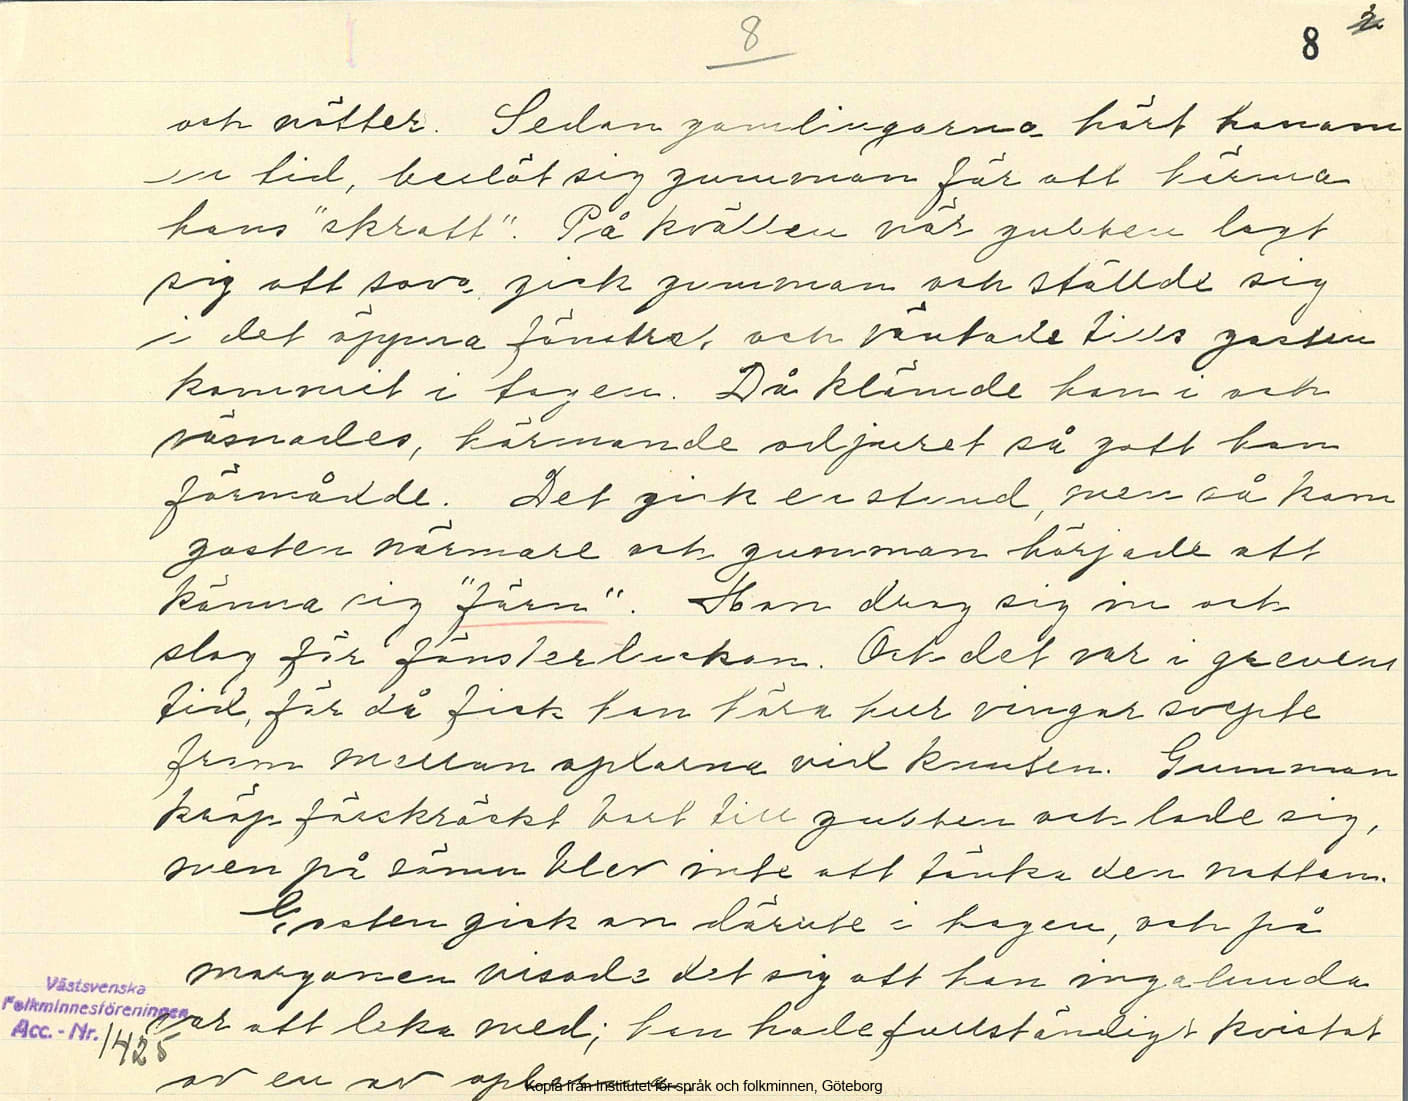 8
8
och nötter. Sedan gamlingarna hört honom
en tid, beslöt sig gumman för att härma
hans "skratt". På kvällen när gubben lagt
sig att sova gick gumman och ställde sig
i det öppna fönstret och väntade tills gasten
kommit i hagen. Då klämde hon i och
väsnades, härmande odjuret så gott hon
förmådde. Det gick en stund, men så kom
gasten närmare och gumman började att
känna sig "färm". Hon drog sig in och
slog för fönsterluckan. Och det var i grevens
tid, för då fick hon höra hur vingar svepte
fram mellan aplarna vid knuten. Gumman
kröp förskräckt bort till gubben och lade sig,
men på sömn blev inte att tänka den natten.
Gasten gick an därute i hagen, och på
morgonen visade det sig att han ingalunda
var att leka med; han hade fullständigt kvistat
av en av aplarna
Västsvenska
Folkminnesföreningen
Acc. - Nr. 1425
Kopia från Institutet för språk och folkminnen, Göteborg